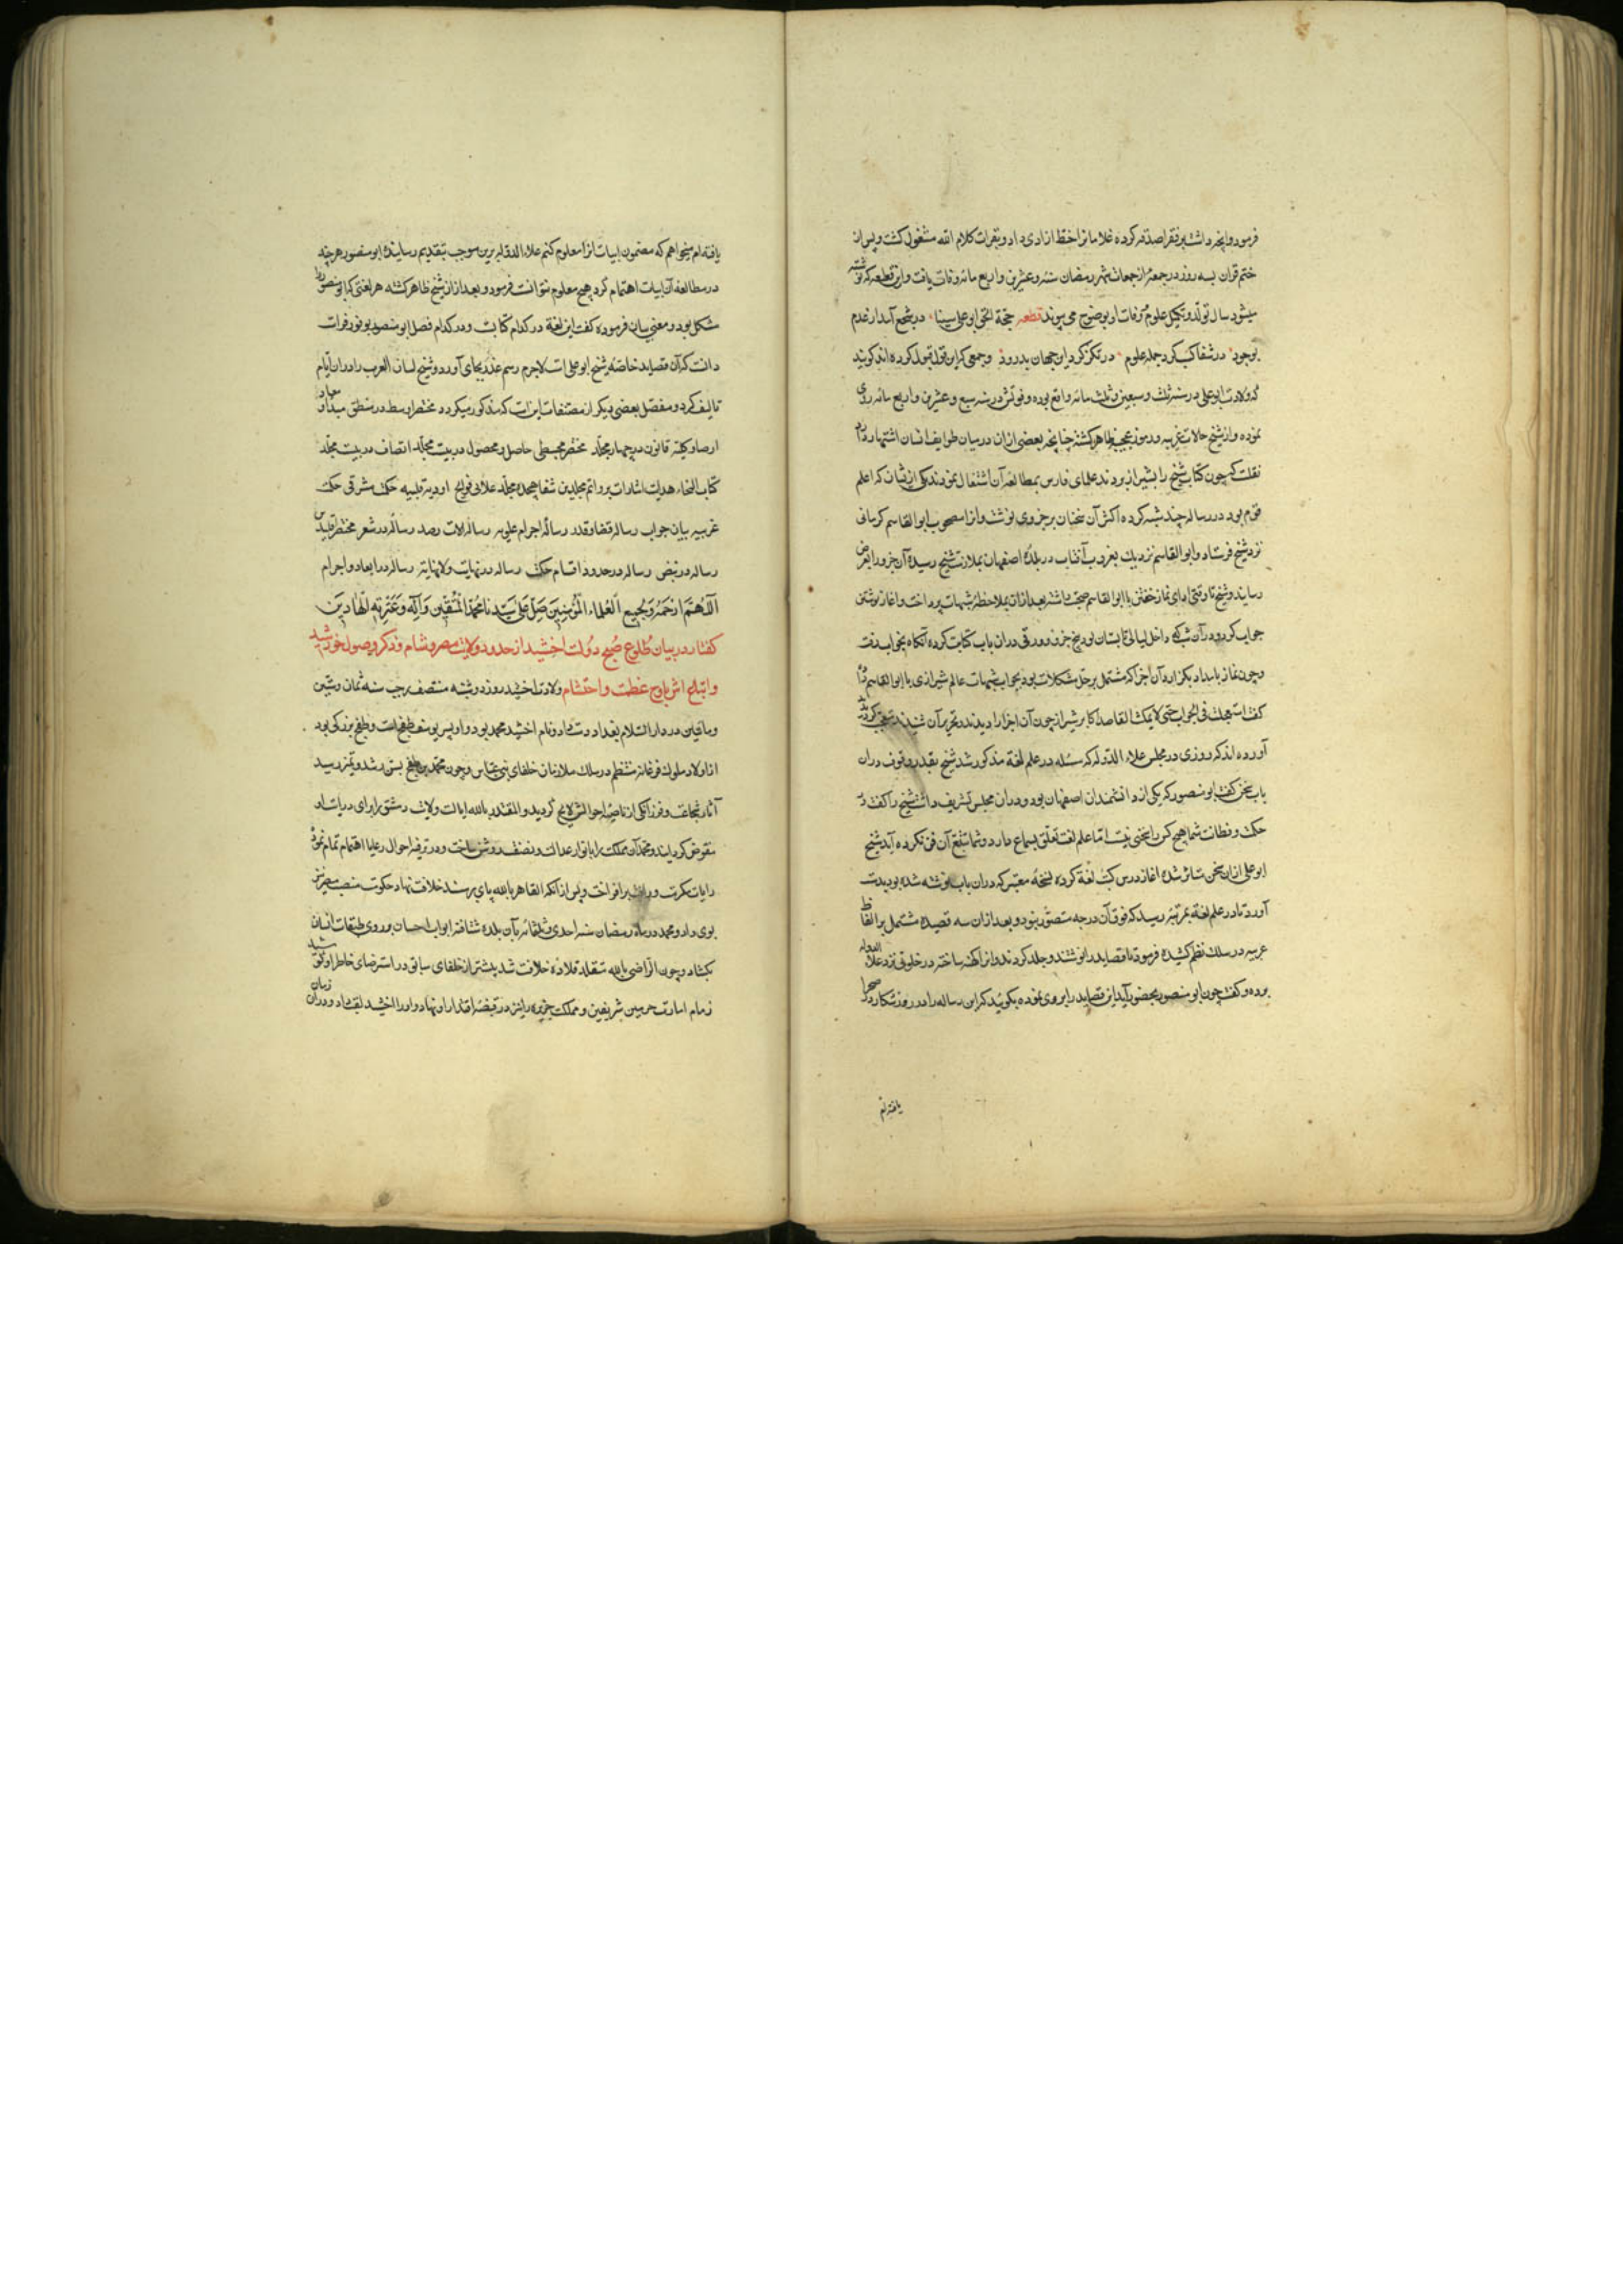 فرمود و آنچه داشت بر فقرا صدقه کرده غلامانرا خط ازادی داد و بقرات کلام الله مشغول کشت و پس از
ختم قران بسه روز در جمعهٔ از جمعات شهر رمضان سنه وعشرین و اربع مائه وفات یافت و این قطعه که نوشته
میشود سال تولد و تکمیل علوم و وفات او بوضوح می پیوندد قطعه حجة الحق ابو علی سینا در شجع آمد از عدم
بوجود در شصا کسب کرد جمله علوم در تکز کرد این جهان بدرود و جمعی که این قول قبول کرده اند کویند
که ولادت ابو علی در سنه ثلث و سبعین و ثلث مائه واقع بوده و فوتش در سنه سبع و عشرین و اربع مائه روی
نموده و از شیخ حالات غریبه و رموز عجیبه ظاهر کشته چنانچه بعضی ازان در میان طوایف انسان اشتهار دارد
نقلست که چون کتاب شیخ را بشیراز بردند علمای فارس بمطالعه آن اشتغال نمودند یکی از یشان که اعلم
قوم بود در رساله چند شبه کرده اکثر آن سخنان بر جزوی نوشت و انرا مصحوب ابو القاسم کرمانی
نزد شیخ فرستاد و ابو القاسم نزدیک بغروب آفتاب در بلدهٔ اصفهان بملازمت شیخ رسیده آن جزو را بعرض
رسانید و شیخ تا وقت ادای نماز خفتن با ابو القاسم صحبت داشته بعد ازان بملاحظهٔ شبهات پرداخت و اغاز نوشتن
جواب کرد و در آن شب که داخل لیالی تابستان بود پنج جزو ده ورقی دران باب کتابت کرده آنکاه بخواب رفت
و چون نماز بامداد بکزارد آن اجزا که مشتمل بر حل مشکلات بود بجواب شبهات عالم شیرازی با ابو القاسم داد
کفت استعجلت فی الجواب حتی لا یمکث القاصد اکابر شیراز چون آن اجزا را دیدند و تحریر آن شنیدند تعجب کردند
آورده اند که روزی در مجلس علاء الدوله که مسئله در علم لغة مذکور شد شیخ بقدر وقوف دران
باب سخن کفت ابو منصور که یکی از دانشمندان اصفهان بود و دران مجلس تشریف داشت شیخ را کفت در
حکمت و فطانت شما هیچ کس را سخنی نیست اما علم لغت تعلق بسماع دارد و شما تتبع آن فن نکرده آید شیخ
ابو علی ازان سخن متاثر شده اغاز درس کتب لغة کرده نسخهٔ معتبر که دران باب نوشته شده بود بدست
آورد تا در علم لغة بمرتبهٔ رسید که فوق آن درجه متصور نبود و بعد ازان سه قصیده مشتمل بر الفاظ
عربیه در سلک نظم کشیده فرمود تا قصاید را نوشتند و جلد کردند و انرا کهنه ساخته در خلوتی نزد علاء الدوله
برده و کفت چون ابو منصور بحضور آید این قصاید را بروی نموده بکویید که این رساله را در روز شکار در صحرا
یافته ام
یافته ام میخواهم که مضمون ابیات انرا معلوم کنم علاء الدوله برین موجب بتقدیم رسانیده ابو منصور هر چند
در مطالعه آن ابیات اهتمام کرد هیچ معلوم نتوانست فرمود و بعد ازان شیخ ظاهر کشته هر لغتی که ابو منصور را
مشکل بود و معنی بیان فرموده کفت این لغة در کدام کتابست و در کدام فصل ابو منصور بو فور فراست
دانست که آن قصاید خاصهٔ شیخ ابو علی است لاجرم رسم عذر بجای آورد و شیخ لسان العرب را دران ایام
تالیف کرد و مفصل بعضی دیکر از مصنفات این است که مذکور میکردد مختصر اوسط در منطق مبدا و معاد
ارصاد کلیه قانون در چهار مجلد مختصر مجسطی حاصل و محصول در بیست مجلد انصاف در بیست مجلد
کتاب النجاة هدایت اشارات بر و اثم مجلدین شفا هیجده مجلد علائی قولنج ادویه قلبیه حکمت مشرقی حکمت
غریبیه بیان جواب رساله قضا و قدر رساله اجرام علویه رساله الات رصد رساله در شعر مختصر اقلیدس
رساله در نبض رساله در حدود اقسام حکمت رساله در نهایت و لا نهایة رساله در ابعاد و اجرام
اللهم ارحمه و بجمیع العلماء المؤمنین صل علی سیدنا محمد المتقین و آله و عترته الهادین
کفتار در بیان طلوع صبح دولت اخشید از حدود ولایت مصر و شام و ذکر وصول خورشید
و ابتلغ اش باوج عظمت و احتشام ولادت اخشید روز دوشنبه منتصف رجب سنه ثمان و ستین
و مأتین در دار السلام بغداد دست داد و نام اخشید محمد بود و او پسر یوسف طغج است و طغج بزرکی بود
از اولاد ملوک فرغانه منتظم در سلک ملازمان خلفای بنی عباس و چون محمد بن طغج بسن رشد و تمیز رسید
آثار شجاعت و فرزانکی از ناصیهٔ احوالش لایح کردید و المقتدر بالله ایالت ولایت دمشق را برای در یاست او
مفوض کردانید و محمد آن مملکت را بانوار عدالت و نصفت روشن ساخت و در ترفیه احوال رعایا اهتمام تمام نموده
رایات مکرمت و رافت بر افراخت و پس از انکه القاهر بالله پای بر مسند خلافت نهاد حکومت منصب مصر نیز
بوی داد و محمد در ماه رمضان سنه احدی و ثلثمائه بآن بلده شتافته ابواب احسان بر روی طبقات انسان
بکشاد و چون الراضی بالله متقلد قلاده خلافت شد بیشتر از خلفای سابق در استرضای خاطر او کوشید
زمام امارت حرمین شریفین و مملکت جزیره را نیز در قبضهٔ اقتدار او نهاد و او را اخشید لقب داد و دران زمان